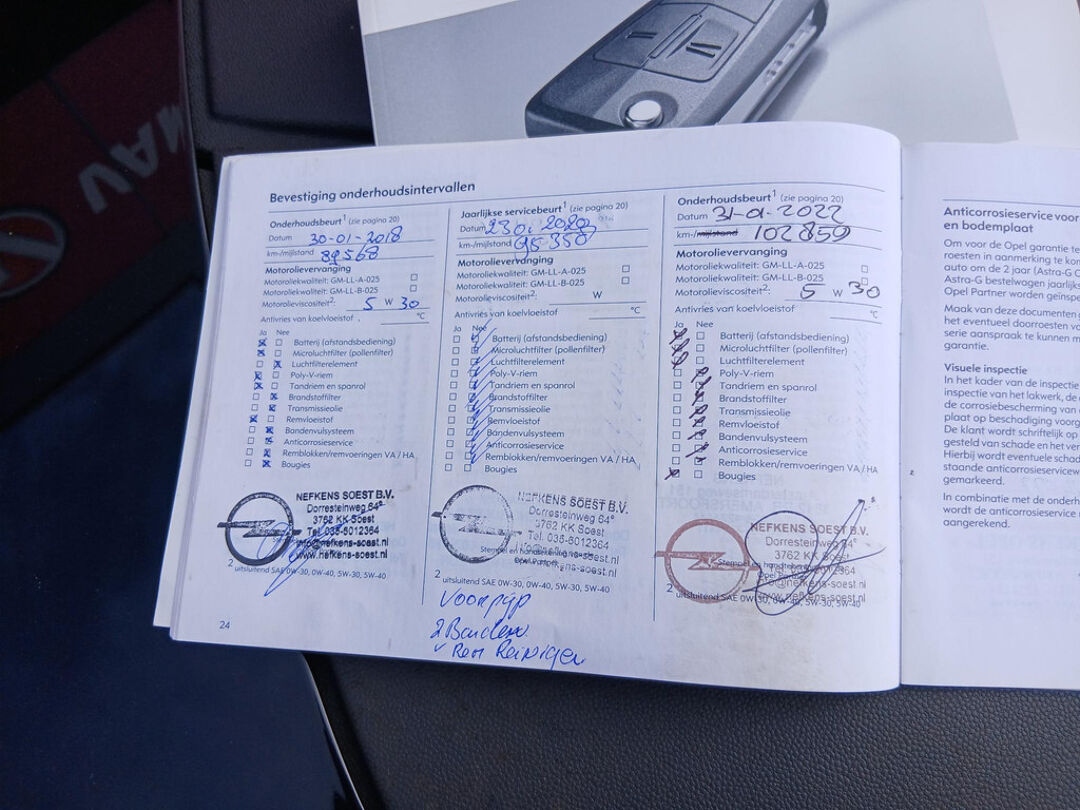 MAV
Bevestiging onderhoudsintervallen
Onderhoudsbeurt¹ (zie pagina 20)
Datum 30-01-2018
km-/mijlstand 89568
Motorolievervanging
Motoroliekwaliteit: GM-LL-A-025
Motoroliekwaliteit: GM-LL-B-025
Motorolieviscositeit²: 5 W 30
Antivries van koelvloeistof °C
Ja Nee
Batterij (afstandsbediening)
Microluchtfilter (pollenfilter)
Luchtfilterelement
Poly-V-riem
Tandriem en spanrol
Brandstoffilter
Transmissieolie
Remvloeistof
Bandenvulsysteem
Anticorrosieservice
Remblokken/remvoeringen VA / HA
Bougies
NEFKENS SOEST B.V.
Dorresteinweg 64ᵃ
3762 KK Soest
Tel. 035-6012364
info@nefkens-soest.nl
www.nefkens-soest.nl
2 uitsluitend SAE 0W-30, 0W-40, 5W-30, 5W-40
24
Jaarlijkse servicebeurt¹ (zie pagina 20)
Datum 2020
km-/mijlstand 95350
Motorolievervanging
Motoroliekwaliteit: GM-LL-A-025
Motoroliekwaliteit: GM-LL-B-025
Motorolieviscositeit²: W
Antivries van koelvloeistof °C
Ja Nee
Batterij (afstandsbediening)
Microluchtfilter (pollenfilter)
Luchtfilterelement
Poly-V-riem
Tandriem en spanrol
Brandstoffilter
Transmissieolie
Remvloeistof
Bandenvulsysteem
Anticorrosieservice
Remblokken/remvoeringen VA / HA
Bougies
NEFKENS SOEST B.V.
Dorresteinweg 64ᵃ
3762 KK Soest
Tel. 035-6012364
Stempel en
2 uitsluitend SAE 0W-30, 0W-40, 5W-30, 5W-40
Voorpijp
2 Banden
Rem Reinigen
Onderhoudsbeurt¹ (zie pagina 20)
Datum 31-01-2022
km-/mijlstand 102859
Motorolievervanging
Motoroliekwaliteit: GM-LL-A-025
Motoroliekwaliteit: GM-LL-B-025
Motorolieviscositeit²: 5 W 30
Antivries van koelvloeistof °C
Ja Nee
Batterij (afstandsbediening)
Microluchtfilter (pollenfilter)
Luchtfilterelement
Poly-V-riem
Tandriem en spanrol
Brandstoffilter
Transmissieolie
Remvloeistof
Bandenvulsysteem
Anticorrosieservice
Remblokken/remvoeringen VA / HA
Bougies
NEFKENS SOEST B.V.
Dorresteinweg 64ᵃ
3762 KK Soest
Stempel en
2 uitsluitend SAE 0W-30, 0W-40, 5W-30, 5W-40
Anticorrosieservice voor
en bodemplaat
Om voor de Opel garantie te
roesten in aanmerking te kom
auto om de 2 jaar (Astra-G C
Astra-G bestelwagen jaarlijks
Opel Partner worden geïnspe
Maak van deze documenten
het eventueel doorroesten vo
serie aanspraak te kunnen m
garantie.
Visuele inspectie
In het kader van de inspectie
inspectie van het lakwerk, de
de corrosiebescherming van
plaat op beschadiging voorg
De klant wordt schriftelijk op
gesteld van schade en het ver
Hierbij wordt eventuele schad
staande anticorrosieservicev
gemarkeerd.
In combinatie met de onderh
wordt de anticorrosieservice
aangerekend.